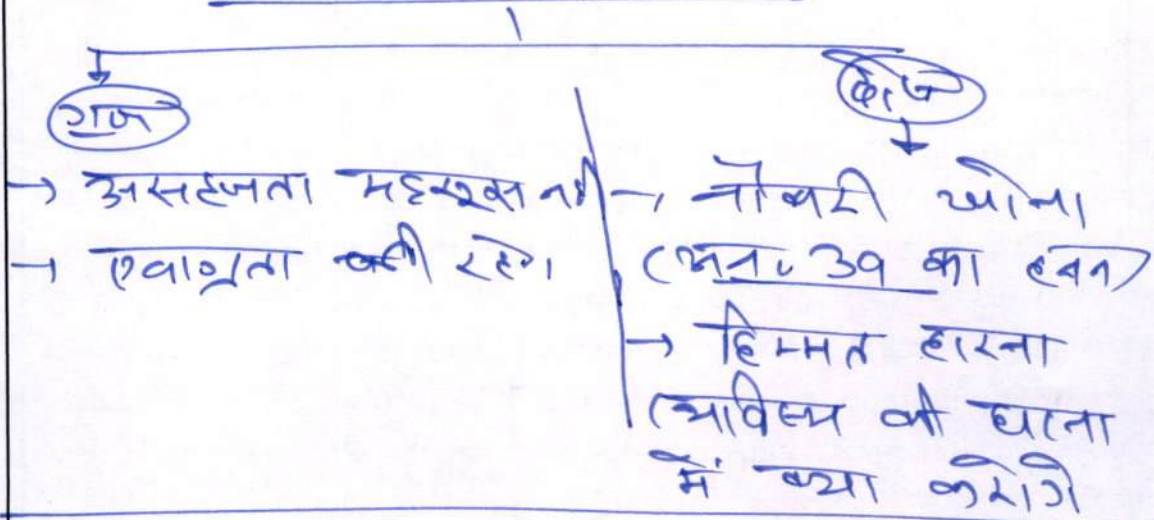 गुण
दोष
→ असहजता महसूस नहीं
→ एकाग्रता बनी रहेगी
→ नौकरी खोना
(अनु. 39 का हनन)
→ हिम्मत हारना
(भविष्य की घटना
में क्या करोगे